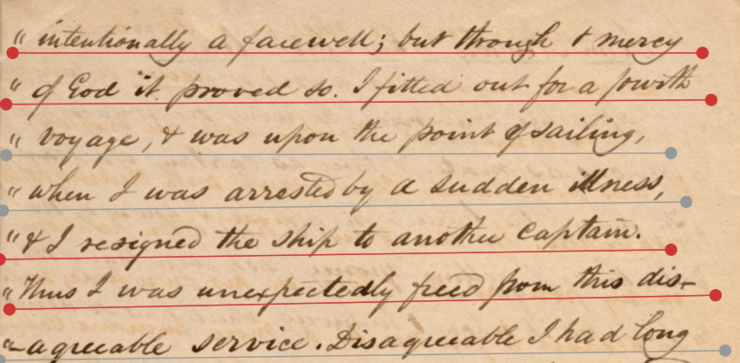 " intentionally a farewell; but through t mercy
" of God it proved so. I fitted out for a fourth
" voyage, & was upon the point of sailing,
" when I was arrested by a sudden illness,
" & I resigned the ship to another captain.
" Thus I was unexpectedly freed from this dis-
"-agreeable service. Disagreeable I had long